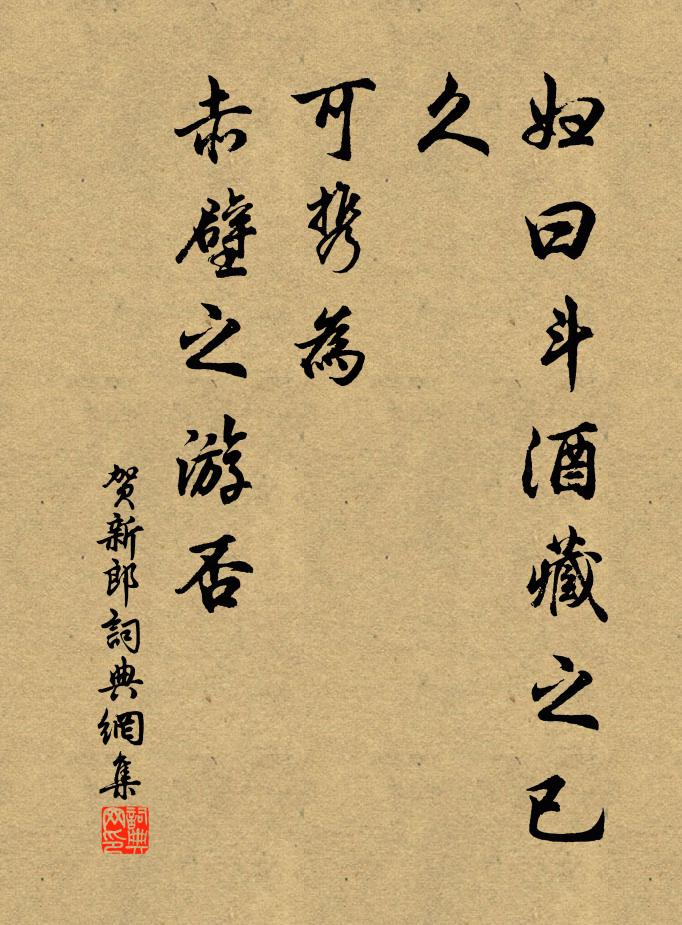 妇曰斗酒藏之已
久
可携為
赤壁之游否
贺新郎詞典網集
詞典
网印